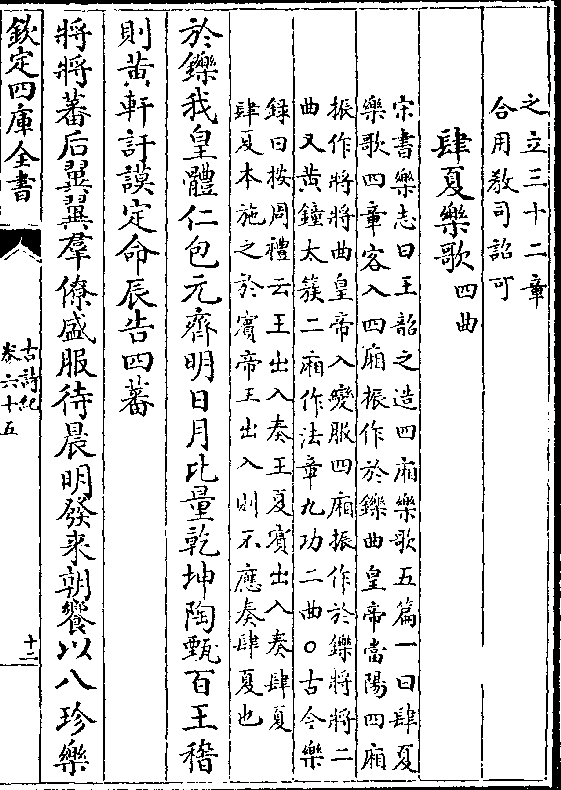 之立三十二章
合用敎司詔可
肆夏樂歌四曲
宋書樂志曰王韶之造四廂樂歌五篇一曰肆夏
樂歌四章客入四廂振作於鑠曲皇帝當陽四廂
振作將將曲皇帝入變服四廂振作於鑠將將二
曲又黄鐘太簇二廂作法章九功二曲○古今樂
録曰按周禮云王出入奏王夏賓出入奏肆夏
肆夏本施之於賓帝王出入則不應奏肆夏也
於鑠我皇體仁包元齊明日月比量乾坤陶甄百王稽
則黄軒訏謨定命辰告四蕃
將將蕃后翼翼羣僚盛服待晨明發来朝饗以八珍樂
欽定四庫全書
古詩紀
卷六十五
十二